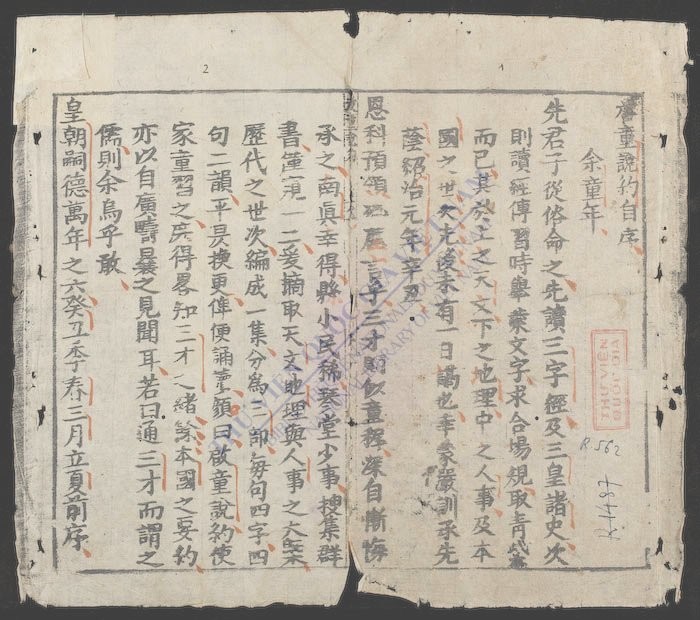 啟童說約自序
余童年
先君子從俗命之先讀三字經及三皇諸史次
則讀經傳習時舉業文字求合塲規取青紫
而已其於上之天文下之地理中之人事及本
國之世次先後未有一日講也幸家嚴訓承先
蔭紹治元年辛丑
恩科預領言乎三才則似童穉深自慚悔
承之南真幸得縣小民稀琴堂少事搜集群
書僅一二爰摘取天文地理與人事之大槩
歷代之世次編成一集分為三部每句四字四
句二韻平昃換更俾便誦讀顏曰啟童說約使
家童習之庶得畧知三才之緒餘本國之要約
亦以自廣疇曩之見聞耳若曰通三才而謂之
儒則余烏乎敢
皇朝嗣德萬年之六癸丑季春三月立夏前序
1
2
THƯ VIỆN
QUỐC GIA
R562
R.1487
THƯ VIỆN QUỐC GIA VIỆT NAM
NATIONAL LIBRARY OF VIETNAM